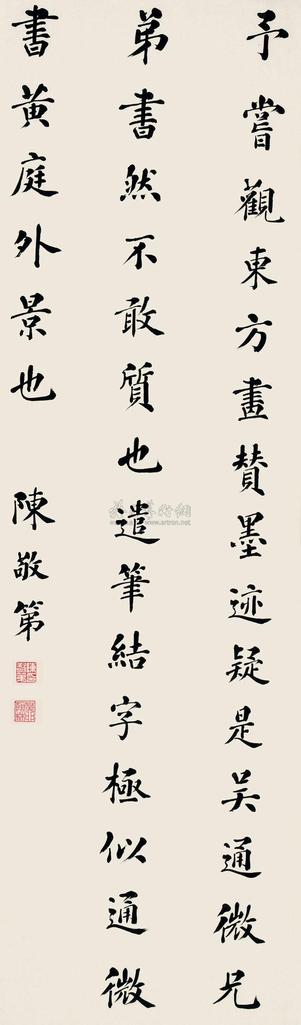 予嘗觀東方畫贊墨迹疑是吴通微兄
弟書然不敢質也遣筆結字極似通微
書黄庭外景也
陳敬第
www.artron.net